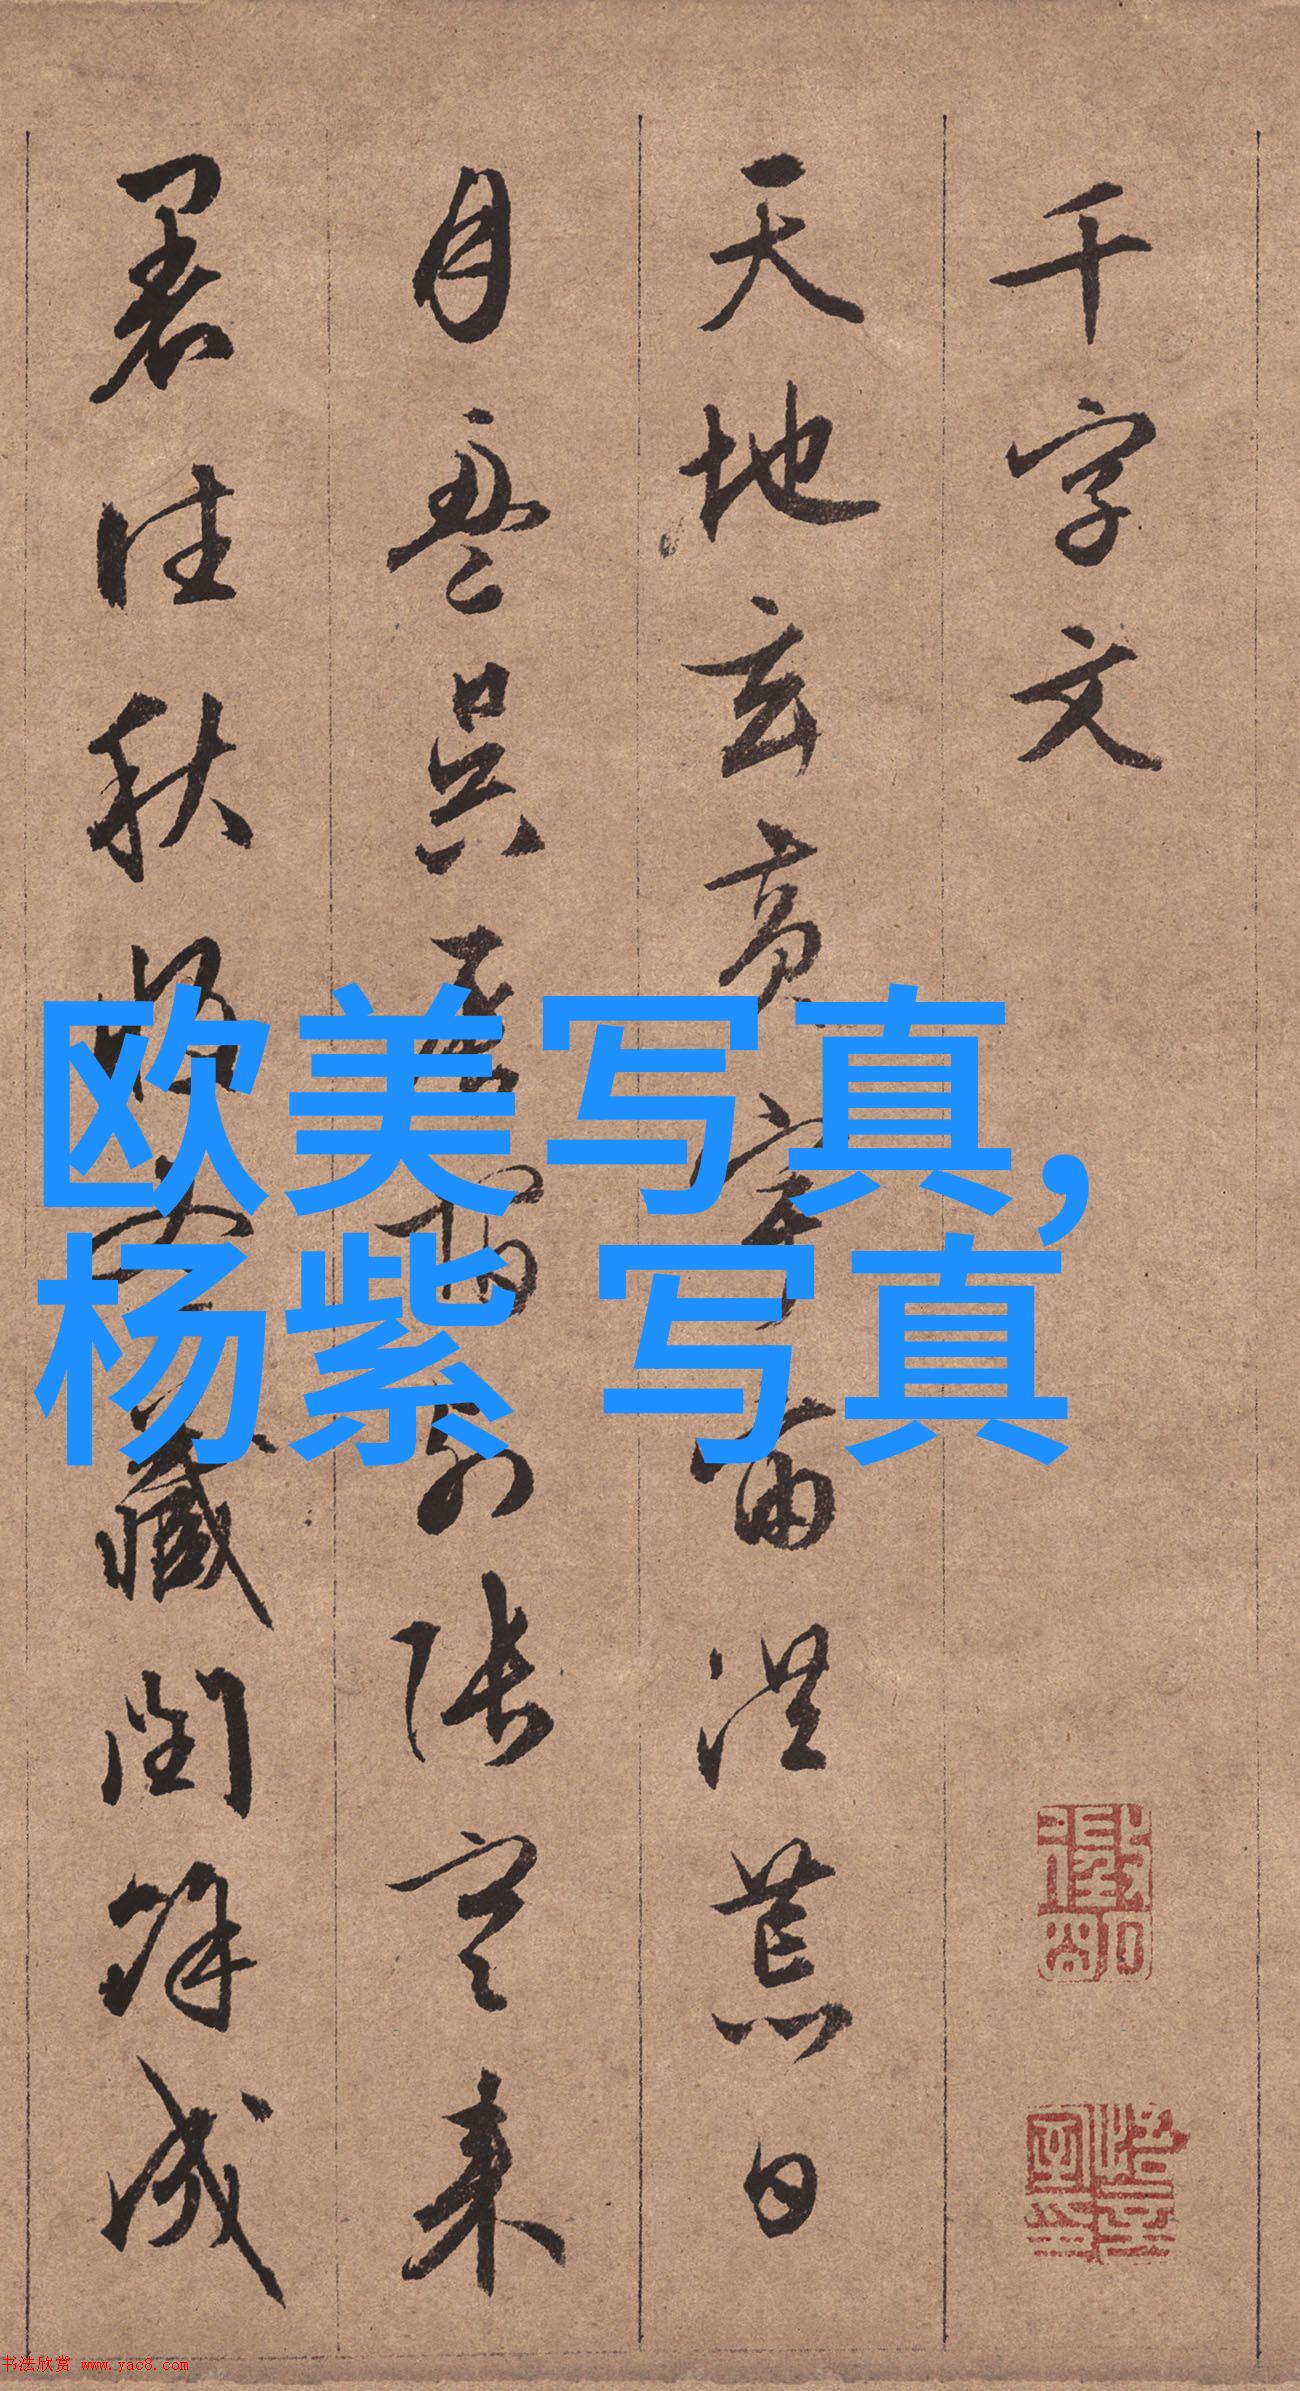 千字文
天地玄黄宇宙洪荒日
月盈昃辰宿列張寒来
暑往秋收冬藏閏餘成
欧美写真,
杨紫 写真
书法欣赏 www.yac8.com